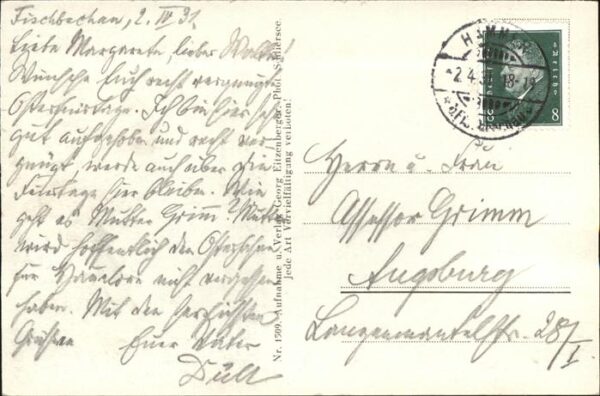 Fischbachau, 2. IV 31.
Liebe Margarete, lieber Walter!
Wünsche Euch recht vergnügte
Osterfeiertage. Ich bin hier sehr
gut aufgehoben und recht ver-
gnügt, werde auch über die
Feiertage hier bleiben. Wie
geht es Mutter Grimm? Mutter
wird hoffentlich den Osterhasen
für Hannelore nicht vergessen
haben. Mit den herzlichsten
Grüßen Euer Vater
Nr. 1509. Aufnahme u. Verlag Georg Eitzenberger, Phot. Schliersee.
jede Art Vervielfältigung verboten!
2.4.31. 18-19
8
Herrn u. Frau
Assessor Grimm
Augsburg
Langenmantelstr. 28/I